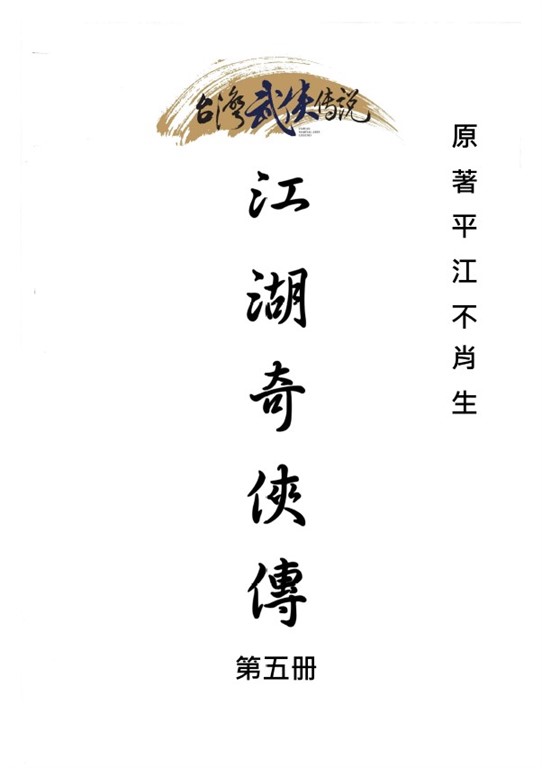 台灣武俠傳說
原著平江不肖生
江湖奇俠傳
第五册